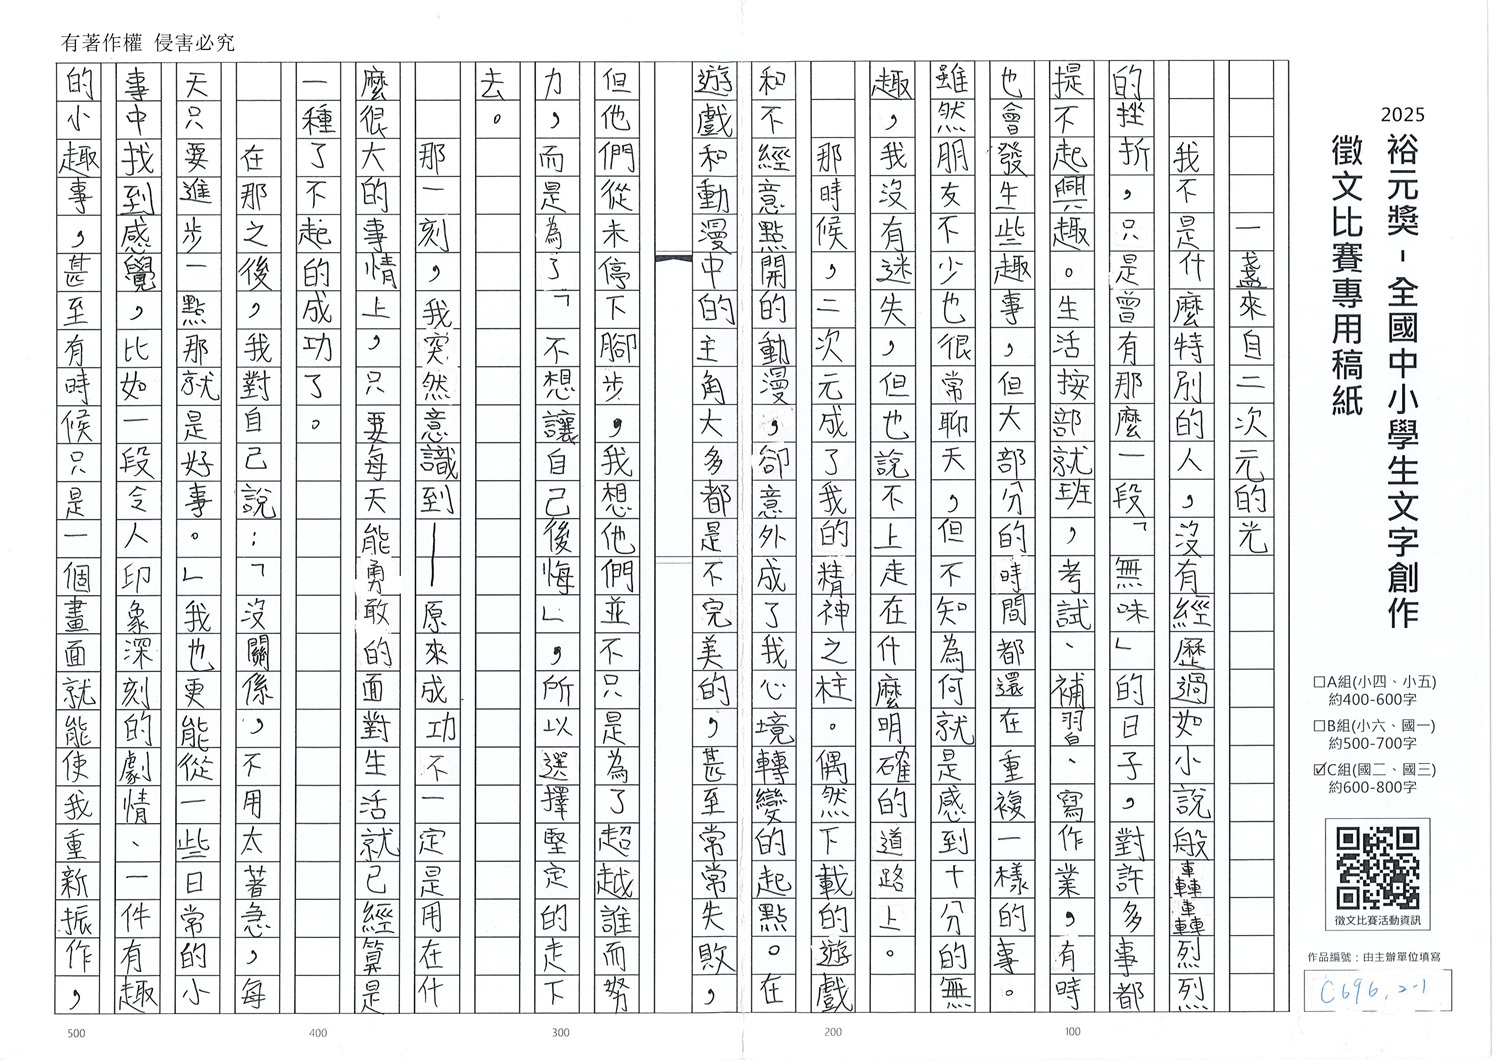 有著作權 侵害必究
2025
裕元獎-全國中小學生文字創作
徵文比賽專用稿紙
□A組(小四、小五)
約400-600字
□B組(小六、國一)
約500-700字
☑C組(國二、國三)
約600-800字
徵文比賽活動資訊
作品編號：由主辦單位填寫
C696,2-1
一盞來自二次元的光
我不是什麼特別的人，沒有經歷過如小說般轟轟烈烈
的挫折，只是曾有那麼一段「無味」的日子，對許多事都
提不起興趣。生活按部就班，考試、補習、寫作業，有時
也會發生些趣事，但大部分的時間都還在重複一樣的事。
雖然朋友不少也很常聊天，但不知為何就是感到十分的無
趣，我沒有迷失，但也說不上走在什麼明確的道路上。
那時候，二次元成了我的精神之柱。偶然下載的遊戲
和不經意點開的動漫，卻意外成了我心境轉變的起點。在
遊戲和動漫中的主角大多都是不完美的，甚至常常失敗，
但他們從未停下腳步，我想他們並不只是為了超越誰而努
力，而是為了「不想讓自己後悔」，所以選擇堅定的走下
去。
那一刻，我突然意識到——原來成功不一定是用在什
麼很大的事情上，只要每天能勇敢的面對生活就已經算是
一種了不起的成功了。
在那之後，我對自己說：「沒關係，不用太著急，每
天只要進步一點那就是好事。」我也更能從一些日常的小
事中找到感覺，比如一段令人印象深刻的劇情、一件有趣
的小趣事，甚至有時候只是一個畫面就能使我重新振作，
100
200
300
400
500